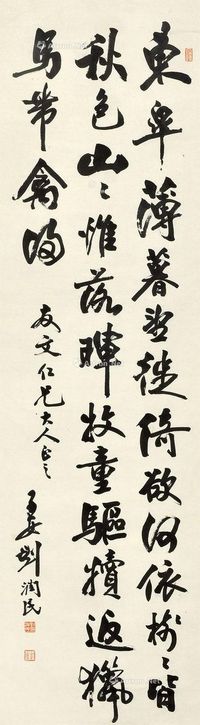 東皋薄暮望徙倚欲何依樹〻皆
秋色山〻惟落暉牧童驅犢返獵
馬帶禽歸
友文仁兄大人正之
劉潤民